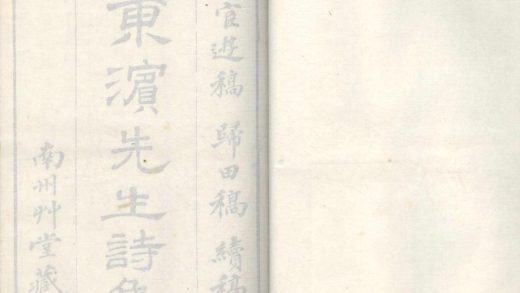 宦遊稿 歸田稿 續稿
東濱先生詩集
南州艸堂藏